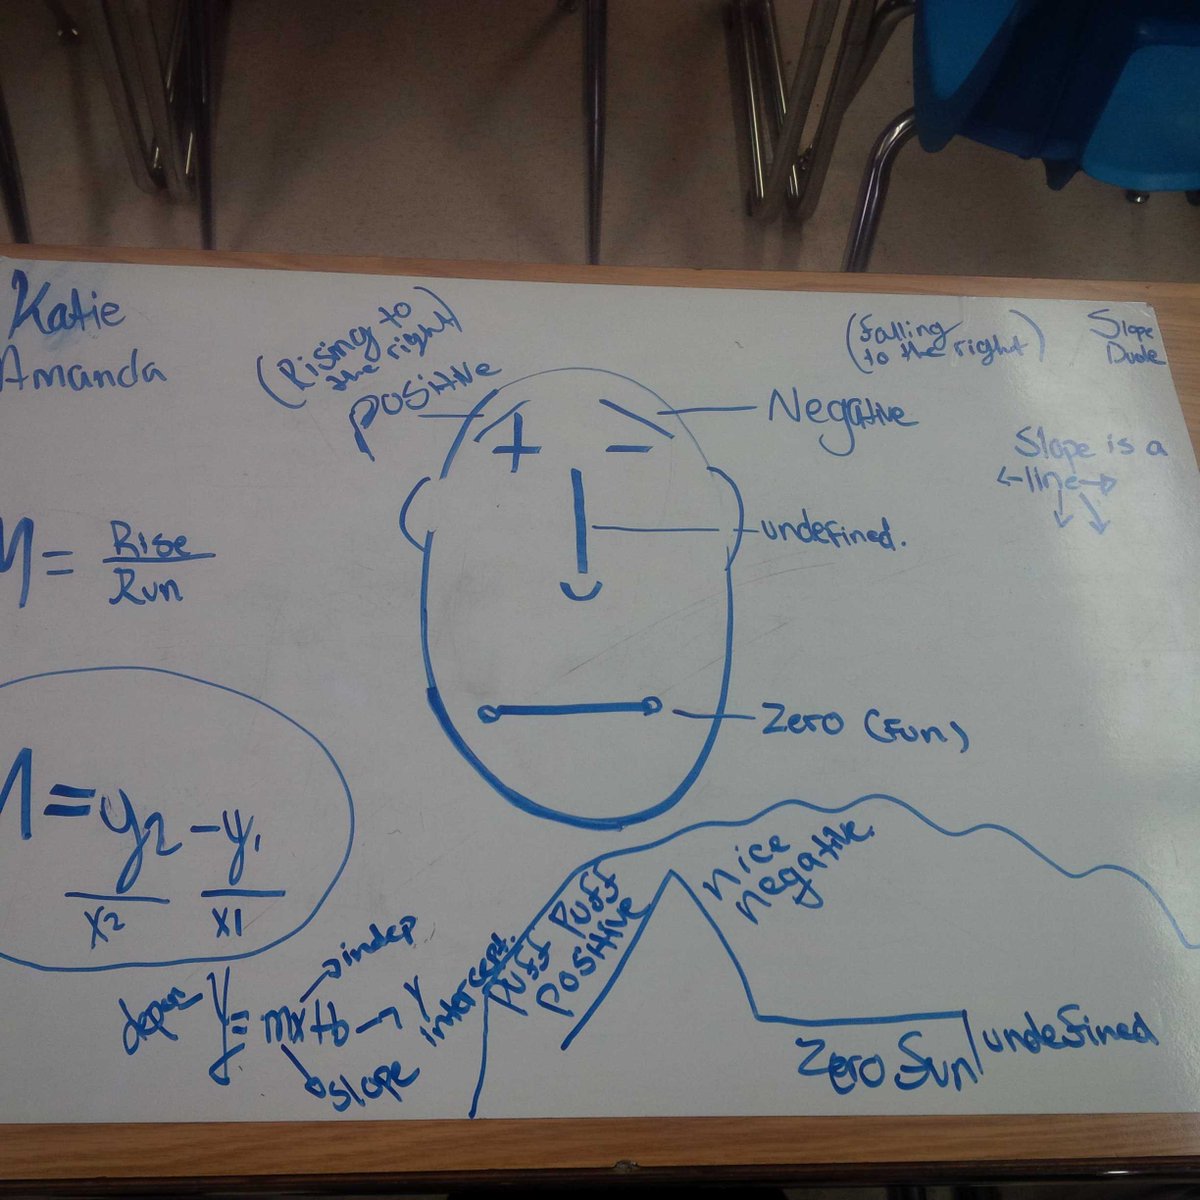 Katie
Amanda
(Rising to
the right)
positive
(falling
to the right)
Slope
Dude
Negative
+
−
Slope is a
←line→
undefined.
M = Rise
Run
Zero (Fun)
M = y2 - y1
x2 x1
nice
negative.
Puff Puff
Positive
indep
depen
Y = mx+b → Y
intercept.
slope
Zero fun
undefined